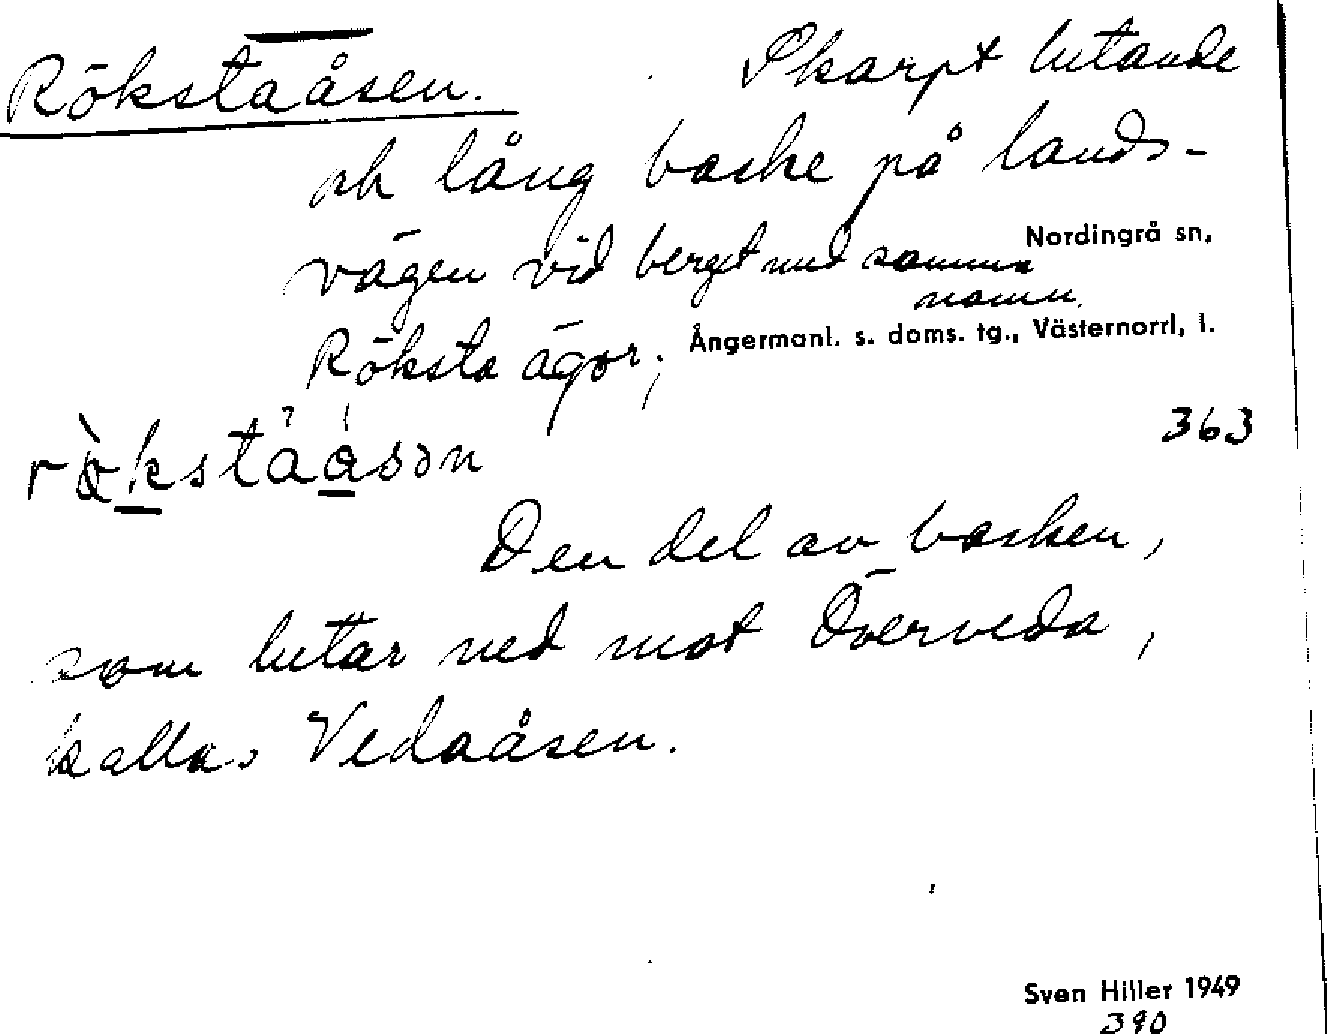 Rökstaåsen. Skarpt lutande
och lång backe på lands-
vägen vid berget med samma
namn.
Nordingrå sn,
Röksta ägor;
Ångermanl. s. doms. tg., Västernorrl, l.
363
Den del av backen,
som lutar ned mot Överveda,
kallas Vedaåsen.
Sven Hiller 1949
390